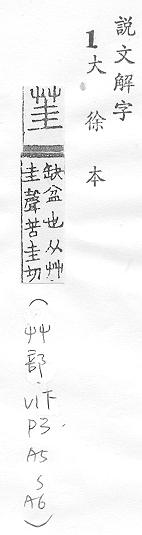 説文解字
1大徐本
茥
缺盆也从艸
圭聲苦圭切
(艸部.VI下
P3.
A5
S
A6)